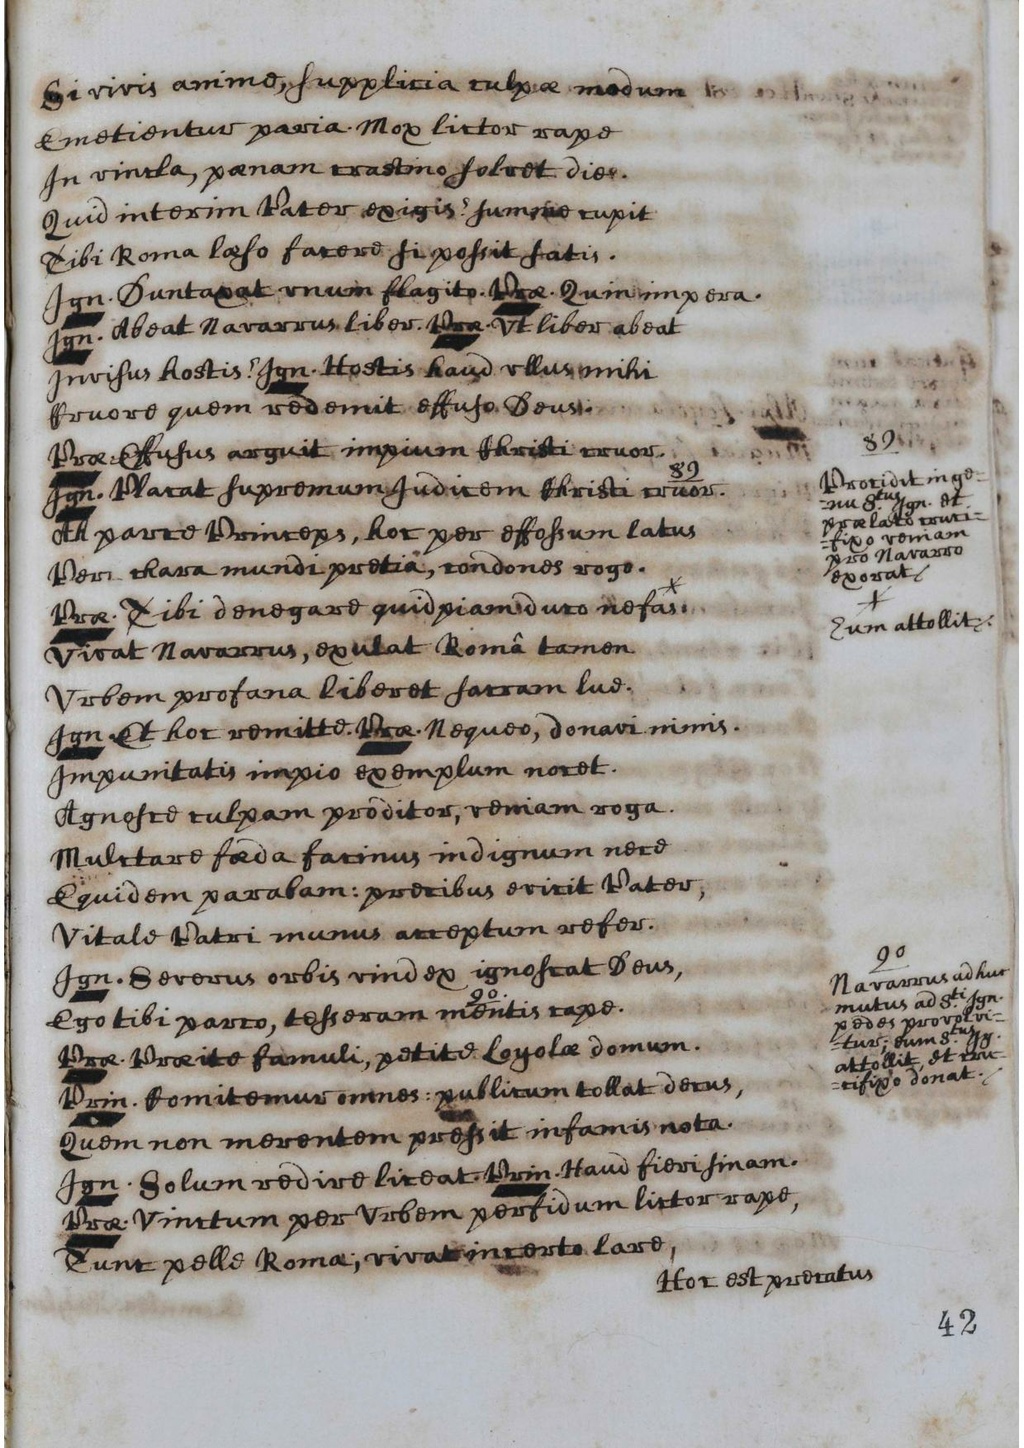 Si vivis anime, supplicia culpæ modum
Emetientur paria. Mox lictor rape
In vincla, pænam crastino solvet die.
Quid interim Pater exigis? summe cupit
Tibi Roma læso facere si possit satis.
Ign. Duntaxat vnum flagito. Præ. Quin impera.
Ign. Abeat Navarrus liber. Præ. Vt liber abeat
Invisus hostis? Ign. Hostis haud vllus mihi
Cruore quem redemit effuso Deus.
Præ. Effusus arguit impium Christi cruor.
89
Ign. Placat supremum Judicem Christi cruor.
Ah parce Princeps, hoc per effossum latus
Per chara mundi pretia, condones rogo.
Præ. Tibi denegare quidpiam duco nefas. +
Vivat Navarrus, exulat Româ tamen
Vrbem profana liberet sacram lue.
Ign. Et hoc remitte. Præ. Nequeo, donavi nimis.
Impunitatis impio exemplum nocet.
Agnosce culpam proditor, veniam roga.
Mulctare fæda facinus indignum nece
Equidem parabam: precibus evicit Pater,
Vitale Patri munus acceptum refer.
Ign. Severus orbis vindex ignoscat Deus,
90.
Ego tibi parco, tesseram mentis cape.
Præ. Præite famuli, petite Loyolæ domum.
Prin. Comitemur omnes: publicum tollat decus,
Quem non merentem pressit infamis nota.
Ign. Solum redire liceat. Prin. Haud fieri sinam.
Præ. Vinctum per Vrbem perfidum lictor rape,
Tunc pelle Roma; vivat incerto lare,
Hoc est precatus
89
Procidit in ge-
=nu S.tus Ign. et
prælato cruci-
=fixo veniam
pro Navarro
exorat
+
Eum attollit
90
Navarrus adhuc
mutus ad S.ti Ign.
pedes provolvi-
=tur; eum S.tus Ig.
attollit, et cru-
=cifixo donat.
42